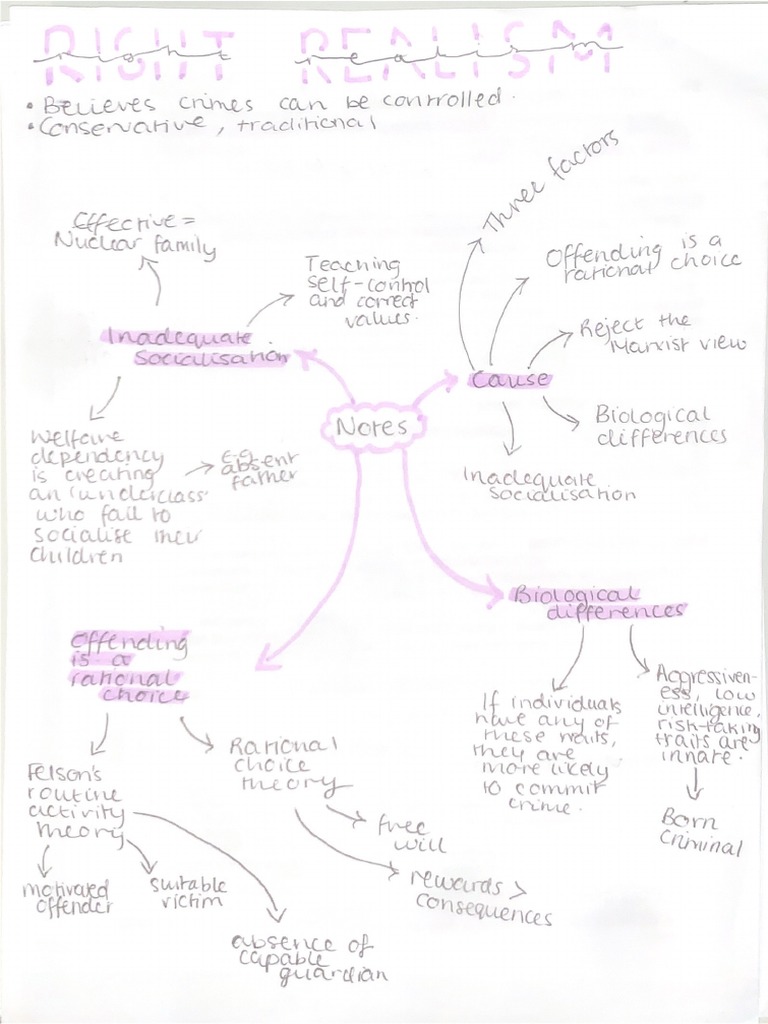 RIGHT REALISM
right realism
• Believes crimes can be controlled.
• Conservative, traditional
Effective =
Nuclear family
Teaching
self-control
and correct
values.
Inadequate
Socialisation
Welfare
dependency
is creating
an 'underclass'
who fail to
socialise their
children
E.G
absent
father
Three factors
Offending is a
rational choice
Reject the
Marxist view
Cause
Biological
differences
Inadequate
Socialisation
Notes
Biological
differences
If individuals
have any of
these traits,
they are
more likely
to commit
crime.
Aggressiven-
ess, low
intelligence,
risk-taking
traits are
innate.
Born
criminal
Offending
is a
rational
choice
Felson's
routine
activity
theory
motivated
offender
suitable
victim
absence of
capable
guardian
Rational
choice
theory
free
will
rewards >
consequences